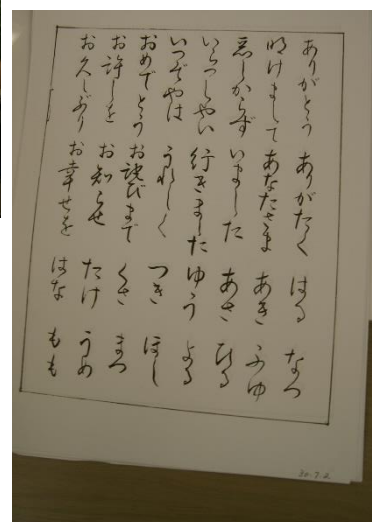 ありがとう ありがたく はる なつ
明けまして あなたさま あき ふゆ
悪しからず いました あさ ひる
いらっしゃい 行きました ゆう よる
いつぞやは うれしく つき ほし
おめでとう お詫びまで くさ まつ
お許しを お知らせ たけ うめ
お久しぶり お幸せを はな もも
30.7.2